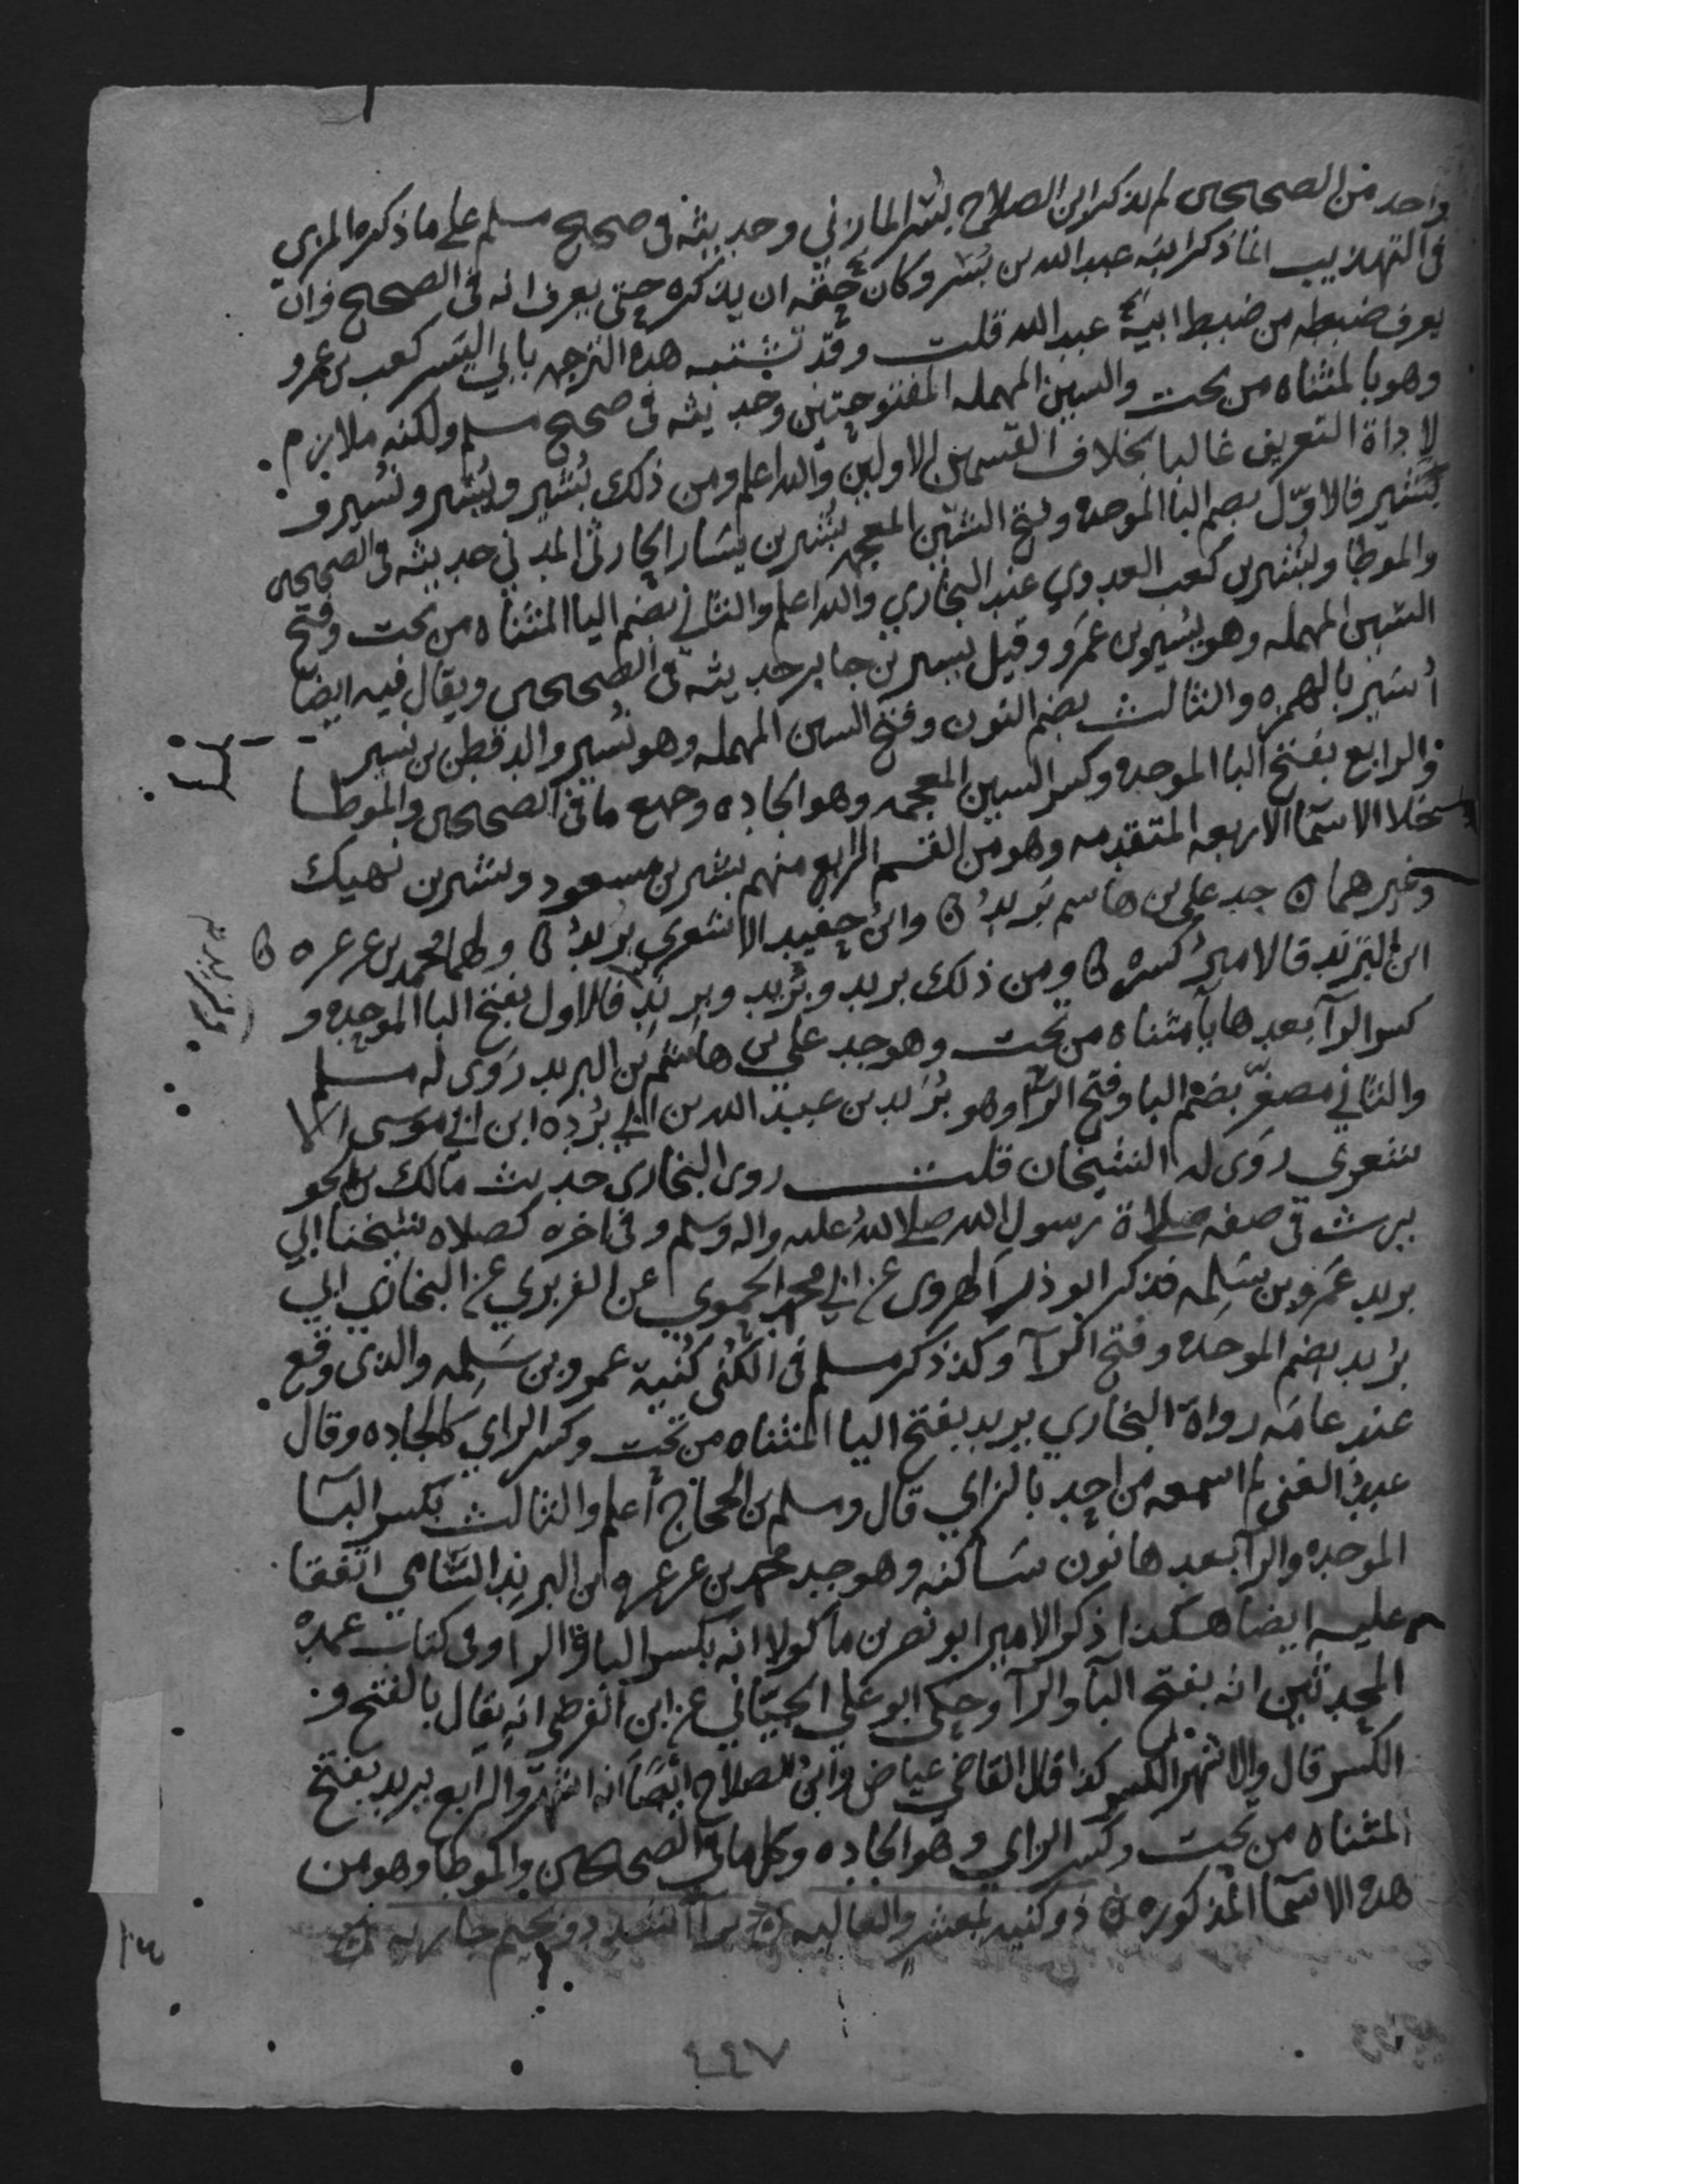 واحد من الصحيحين لم يذكر ابن الصلاح بشر المازني وحديثه في صحيح مسلم على ما ذكره المزي
في التهذيب انما ذكر ابنه عبد الله بن بسر وكان حقه ان يذكره حتى يعرف انه في الصحيح وان
يعرف ضبطه من ضبط ابنه عبد الله قلت وقد تشتبه هذه الترجمه بابي اليسر كعب بن عمرو
وهو بالمثناه من تحت والسين المهمله المفتوحتين وحديثه في صحيح مسلم ولكنه ملازم
لاداة التعريف غالبا بخلاف القسمين الاولين والله اعلم ومن ذلك بُشير ويُسير ونُسير و
بَشير فالاوّل بضم البا الموحده وفتح الشين المعجمه بُشير بن يَسَار الحارثي المدني حديثه في الصحيحين
والموطا وبُشير بن كعب العدوي عند البخاري والله اعلم والثاني بضم اليا المثناه من تحت وفتح
السين المهمله وهو يُسير بن عمرو وقيل يسير بن جابر حديثه في الصحيحين ويقال فيه ايضا
أُسير بالهمزه والثالث بضم النون وفتح السين المهمله وهو نُسير والد قطن بن نسير
والرابع بفتح البا الموحده وكسر الشين المعجمه وهو الجاده وجميع ما في الصحيحين والموطا
خلا الاسما الاربعه المتقدمه وهو من القسم الرابع منهم بشير بن مسعود وبشير بن نهيك
وغيرهما ن جد علي بن هاشم بَريد ن وابن حفيد الاشعري بُريد ن ولهما محمد بن عرعره ن
ابن البرند فالامير كسره ن ومن ذلك بريد وبُريد وبِرند فالاول بفتح البا الموحده و
كسر الرآ بعدها يا مثناه من تحت وهو جد علي بن هاشم بن البريد رَوَى له مسلم
والثاني مصغّر بضم البا وفتح الرا وهو بُرَيد بن عبد الله بن ابي بُرده ابن ابي موسى الا
شعري رَوَى له الشيخان قلت روى البخاري حديث مالك بن الحو
يرث في صفه صلاة رسول الله صلى الله عليه واله وسلم وفي اخره كصلاه شيخنا ابي
بريد عَمرو بن سَلِمه فذكر ابو ذر الهروي عن ابي محمد الحموي عن الفربري عن البخاري ابي
بُريد بضم الموحده وفتح الرآ وكذ ذكر مسلم في الكُنَى كُنية عمرو بن سَلِمه والذي وقع
عند عامّه رواة البخاري يزيد بفتح اليا المثناه من تحت وكسر الزاي كالجاده وقال
عبد الغني لم اسمعه من احد بالزاي قال ومسلم بن الحجاج أعلم والثالث بكسر البآ
الموحده والرآ بعدها نون سَاكنه وهو جد محمد بن عرعره ابن البِرِند السَّامي اتفقا
عليه ايضا هكذا ذكر الامير ابو نصر بن ماكولا انه بكسر البا والرا وفي كتاب عمدة
المحدثين انه بفتح البآ والرآ وحكى ابو علي الجيّاني عن ابن الفرضي انه يقال بالفتح و
الكسر قال والاشهر الكسر كذا قال القاضي عياض وابن الصلاح ايضًا انه اشهر والرابع يزيد بفتح
المثناه من تحت وكسر الزاي وهو الجاده وكل ما في الصحيحين والموطا وهو من
هذه الاسما المذكوره ن ذو كنيه بمعشر والعاليه ن برآ اشدد وبجيم جاريه ن
٤٤٧